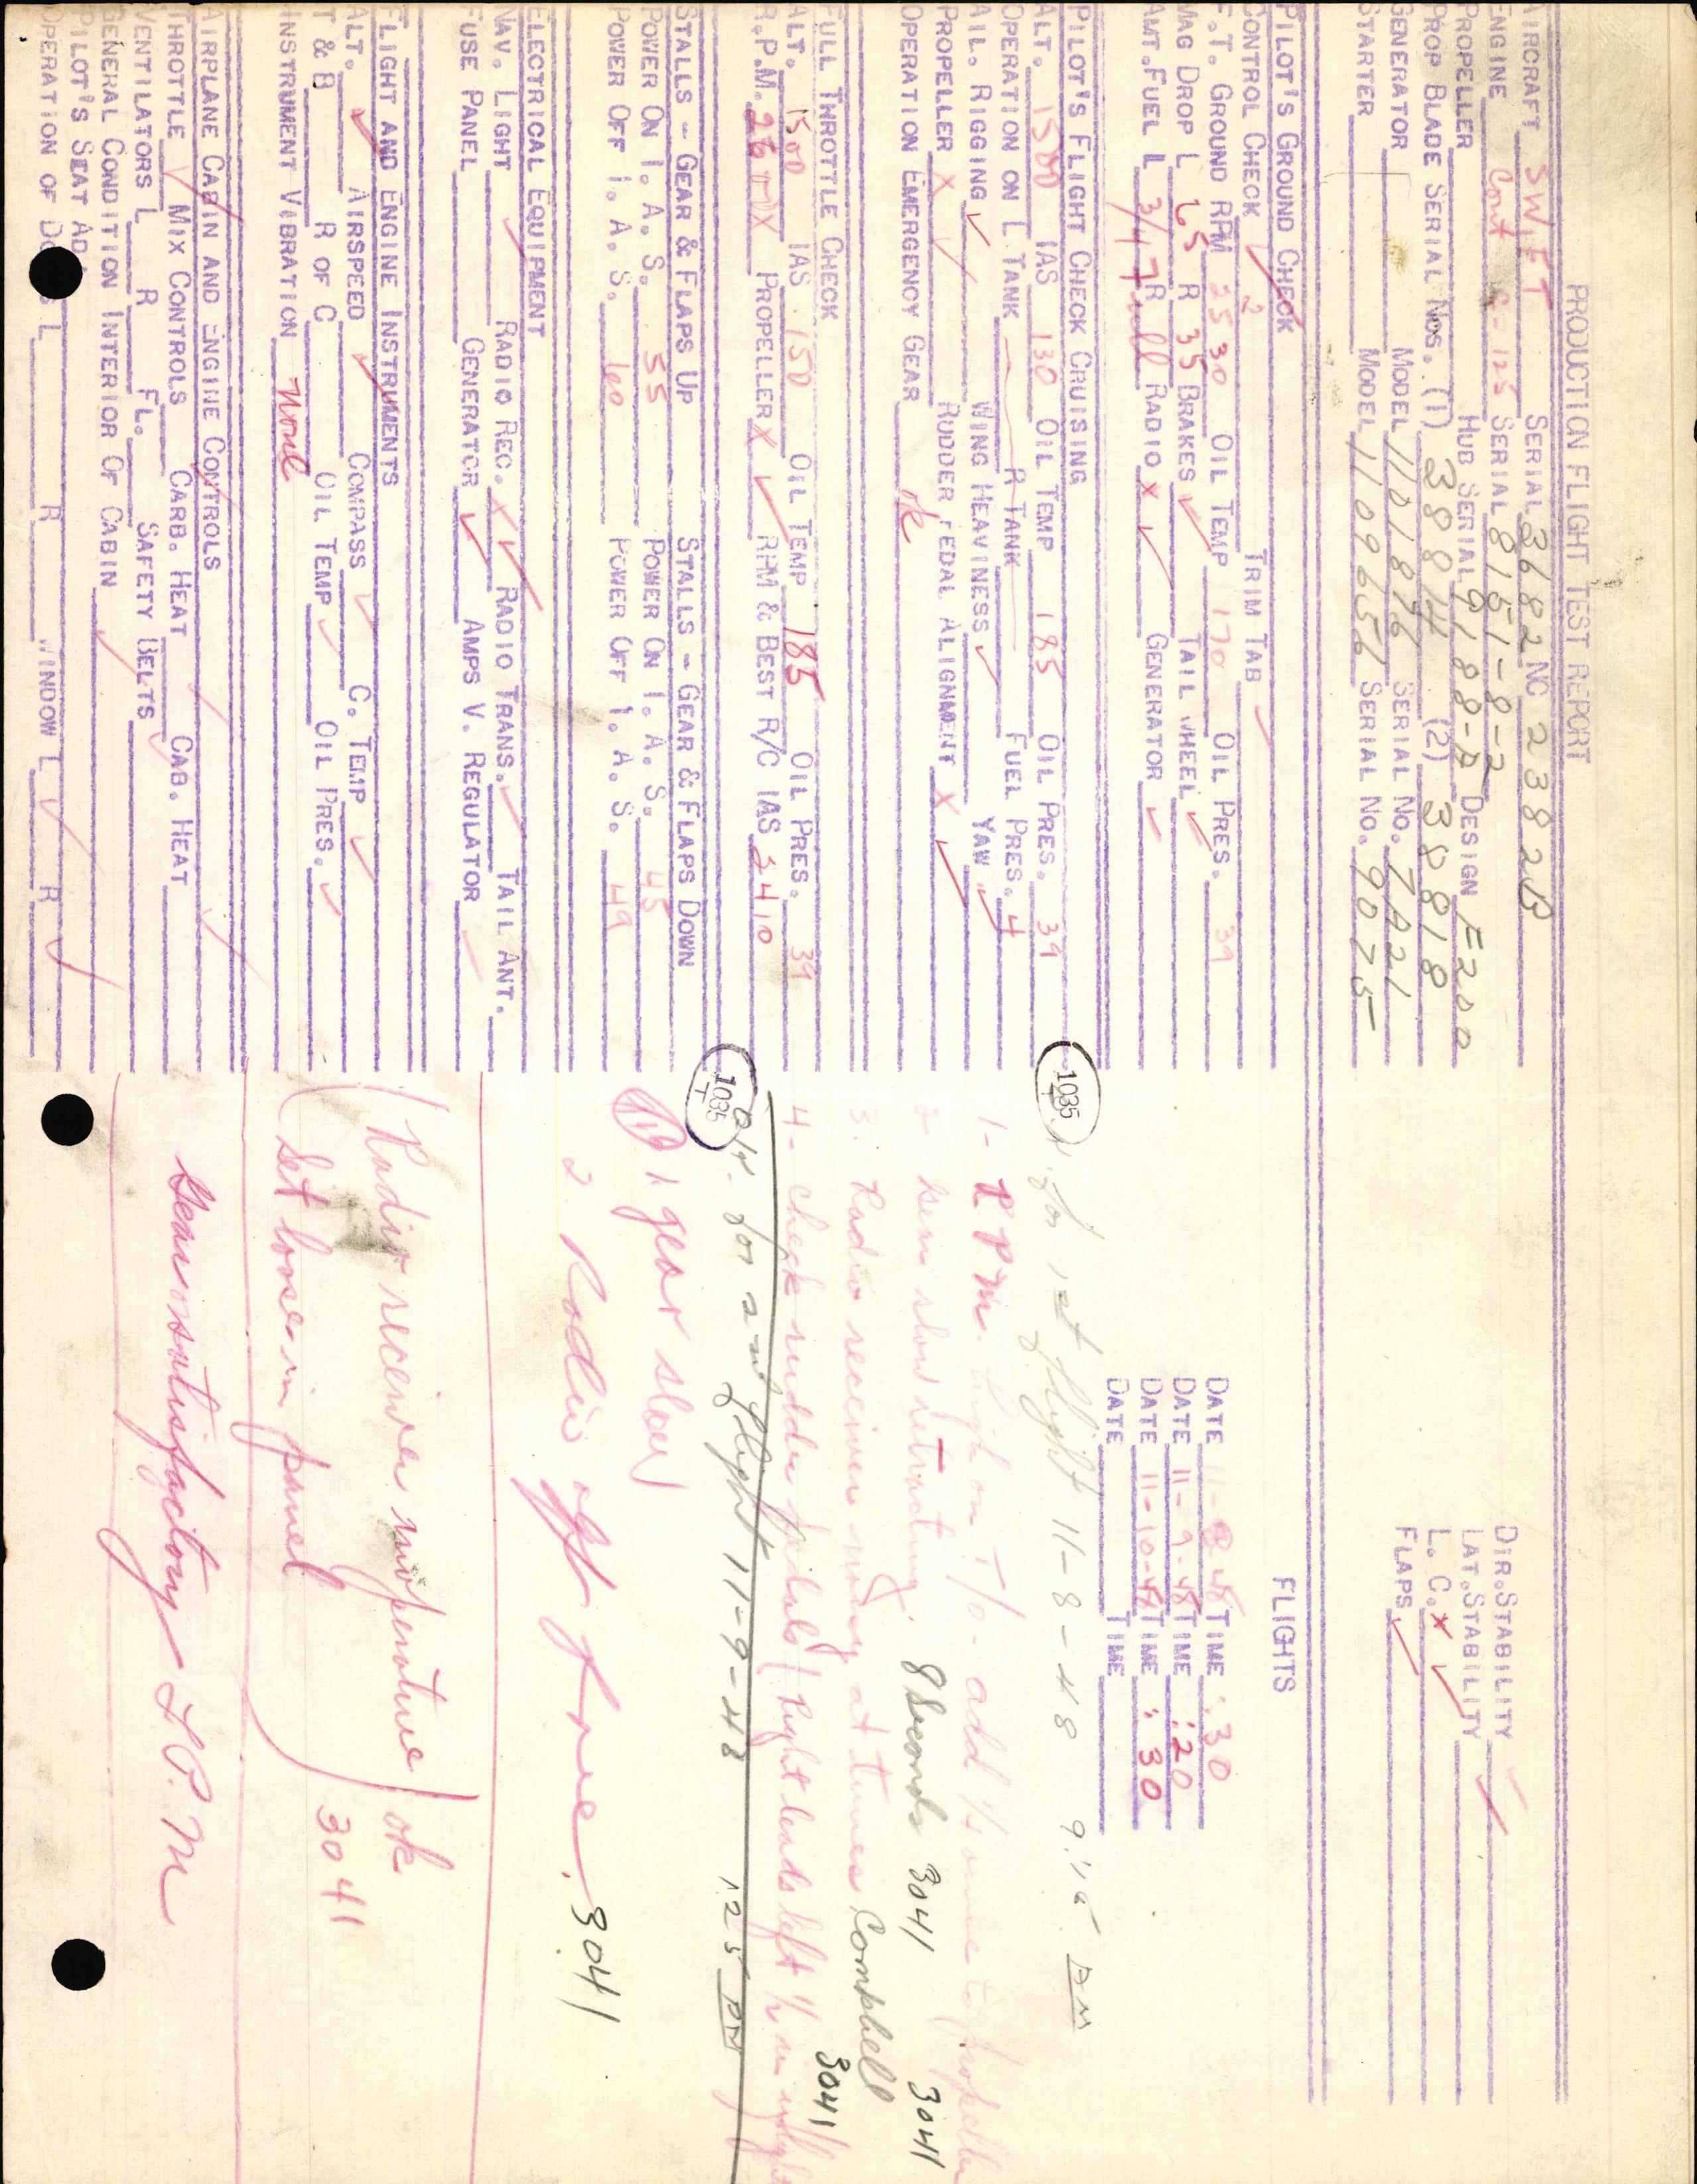 PRODUCTION FLIGHT TEST REPORT
AIRCRAFT SWIFT SERIAL 3682 NC 2382B DIR. STABILITY ✓
ENGINE Cont C-125 SERIAL 8151-8-2 LAT. STABILITY ✓
PROPELLER HUB SERIAL 9188-A DESIGN F200 L. C. X ✓
PROP BLADE SERIAL NOS. (1) 38814 (2) 38818 FLAPS ✓
GENERATOR MODEL 1101876 SERIAL NO. 7A221
STARTER MODEL 1109656 SERIAL NO. 90275
PILOT'S GROUND CHECK FLIGHTS
CONTROL CHECK TRIM TAB ✓
F.T. GROUND RPM 2530 OIL TEMP 170 OIL PRES. 39 DATE 11-8-48 TIME :30
MAG DROP L 65 R 35 BRAKES ✓ TAIL WHEEL ✓ DATE 11-9-48 TIME :20
AMT. FUEL L 3/4 R Full RADIO X ✓ GENERATOR ✓ DATE 11-10-48 TIME :30
DATE TIME
PILOT'S FLIGHT CHECK CRUISING
ALT. 1500 IAS 130 OIL TEMP 185 OIL PRES. 39
OPERATION ON L TANK R TANK FUEL PRES. 4
AIL. RIGGING ✓ WING HEAVINESS ✓ YAW ✓
PROPELLER X ✓ RUDDER PEDAL ALIGNMENT X ✓
OPERATION EMERGENCY GEAR ok
FULL THROTTLE CHECK
ALT. 1500 IAS 150 OIL TEMP 185 OIL PRES. 39
R.P.M. X PROPELLER X ✓ RPM & BEST R/C IAS
STALLS - GEAR & FLAPS UP STALLS - GEAR & FLAPS DOWN
POWER ON I. A. S. 55 POWER ON I. A. S. 45
POWER OFF I. A. S. 60 POWER OFF I. A. S. 49
ELECTRICAL EQUIPMENT
NAV. LIGHT ✓ RADIO REC. X ✓ RADIO TRANS. ✓ TAIL ANT.
FUSE PANEL GENERATOR ✓ AMPS V. REGULATOR
FLIGHT AND ENGINE INSTRUMENTS
ALT. ✓ AIRSPEED ✓ COMPASS ✓ C. TEMP ✓
T & B R OF C OIL TEMP ✓ OIL PRES. ✓
INSTRUMENT VIBRATION None
AIRPLANE CABIN AND ENGINE CONTROLS
THROTTLE ✓ MIX CONTROLS CARB. HEAT CAB. HEAT
VENTILATORS L R FL. SAFETY BELTS ✓
GENERAL CONDITION INTERIOR OF CABIN ✓
PILOT'S SEAT
OPERATION OF L R WINDOW L ✓ R ✓
1035
T
for 1st flight 11-8-48 9:15 AM
1- RPM. high on T/O - add 1/4 to propeller
2- Gear slow retracting. 8 Seconds 3041 3041
3. Radio receiver noisy at times Campbell
4- check rudder pedals / Right leads left 1/2 in 3041
1035
T
O.K. for 2nd flight 11-9-48 1:25 PM
1 gear slow
2. Radio off freq. 3041
Radio receiver inoperative ok
Set loose in panel 3041
Gear unsatisfactory L P. M